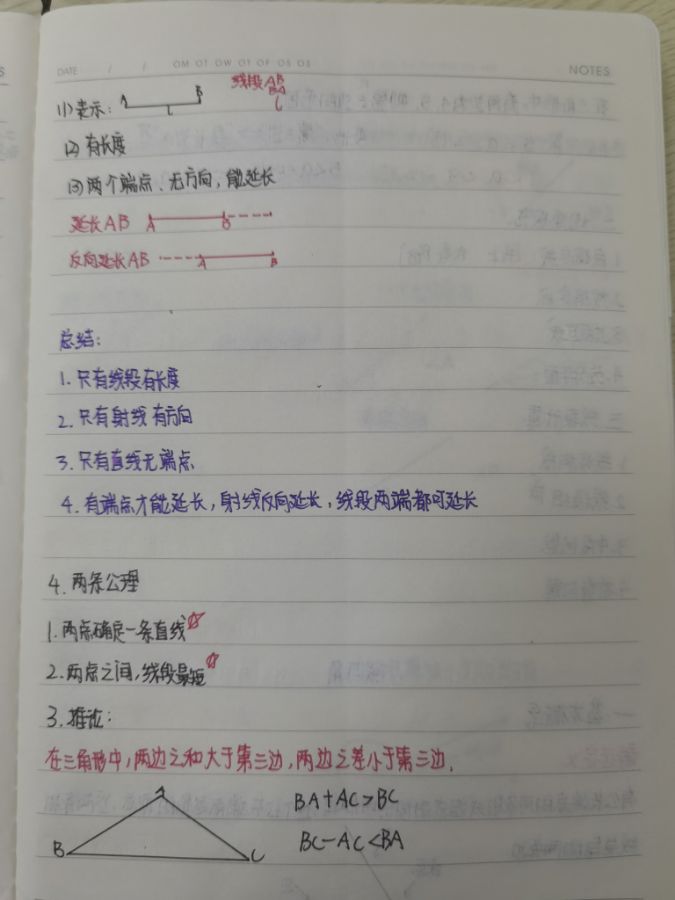 DATE / / NOTES
线段AB
BA
l
(1)表示: A B l
(2)有长度
(3)两个端点、无方向,能延长
延长AB A B
反向延长AB A B
总结:
1.只有线段有长度
2.只有射线有方向
3.只有直线无端点
4.有端点才能延长,射线反向延长,线段两端都可延长
4.两条公理
1.两点确定一条直线☆
2.两点之间,线段最短☆
3.推论:
在三角形中,两边之和大于第三边,两边之差小于第三边.
A
BA+AC>BC
BC-AC<BA
B C